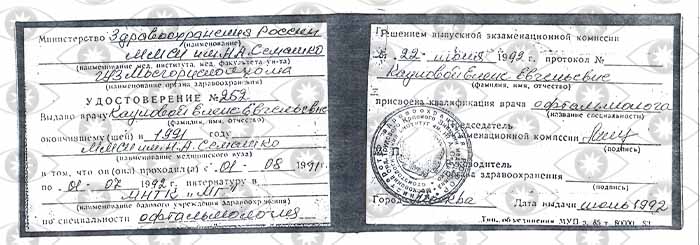 Министерство Здравоохранения России
(наименование)
ММСИ им. Н.А. Семашко
(наименование мед. института, мед. факультета ун-та)
(наименование органа здравоохранения)
УДОСТОВЕРЕНИЕ № 252
Выдано врачу Елене Евгеньевне
(фамилия, имя, отчество)
окончившему (шей) в 1991 году
ММСИ им. Н.А. Семашко
(наименование медицинского вуза)
в том, что он (она) проходил(а) с «01 - 08 1991 г.
по «01 - 07 1992 г. интернатуру в
МНТК "МГ"
(наименование базового учреждения здравоохранения)
по специальности офтальмология
Решением выпускной экзаменационной комиссии
от 22 - июня 1992 г. протокол №
Елене Евгеньевне
(фамилия, имя, отчество)
присвоена квалификация врача офтальмолога
(название специальности)
Председатель
экзаменационной комиссии
(подпись)
Руководитель
органа здравоохранения
(подпись)
Город Москва Дата выдачи июль 1992
Тип. объединения МУП з. 85 т. 80000